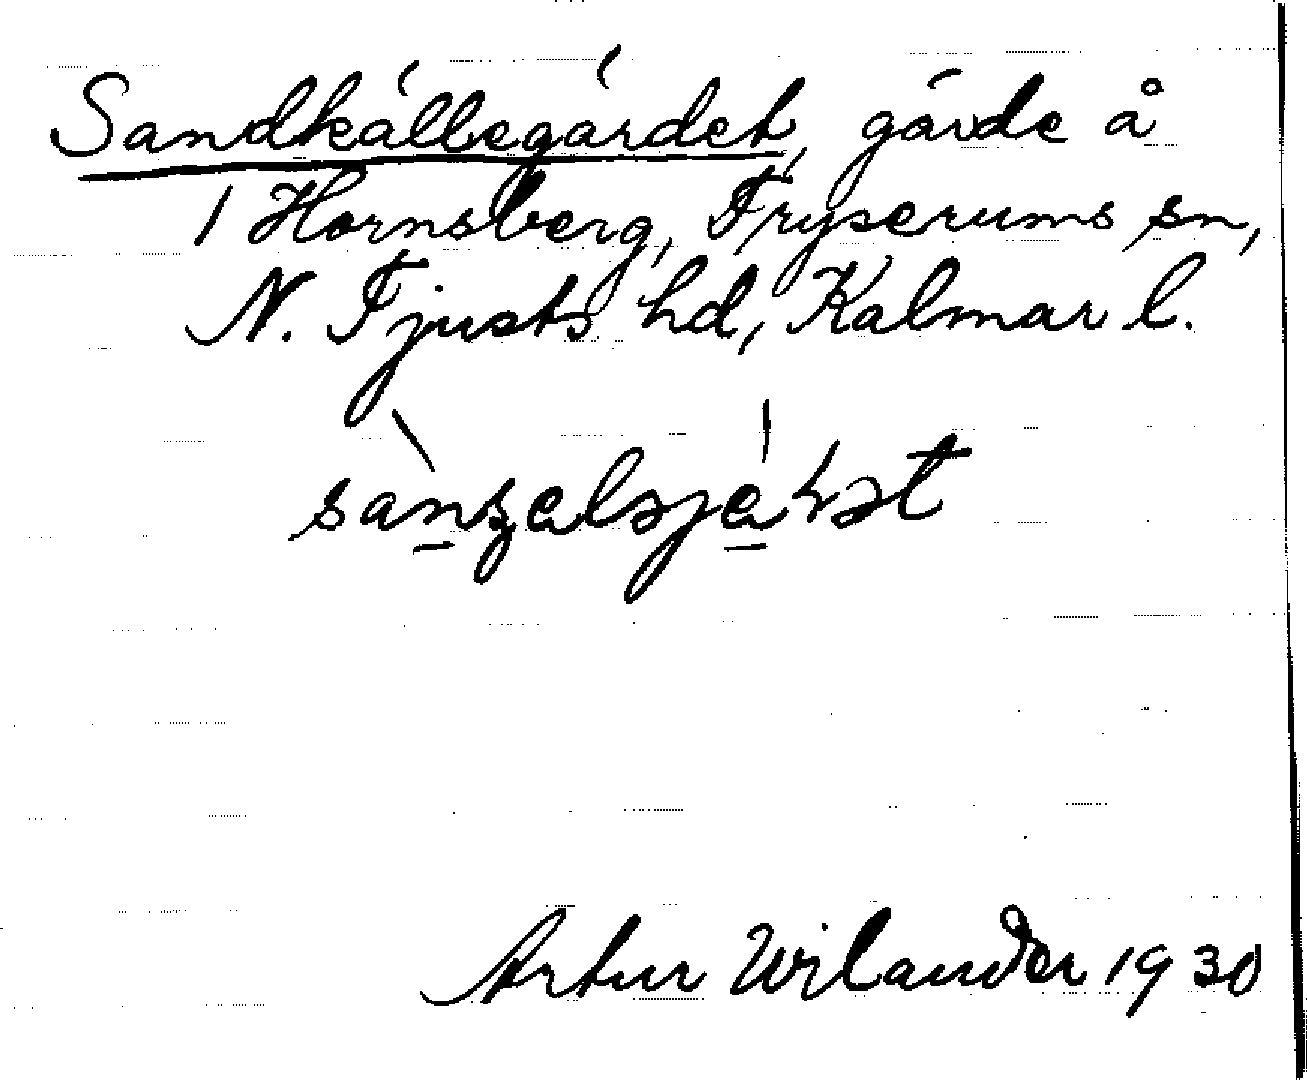 Sandkällegärdet, gärde å
1 Hornsberg, Tryserums sn,
N. Tjusts hd, Kalmar l.
Artur Wilander 1930